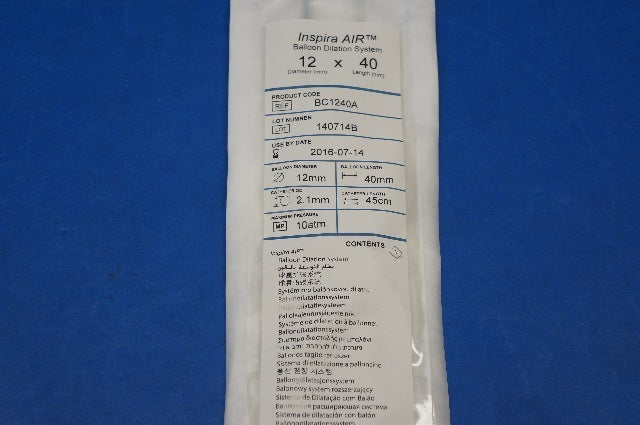 Inspira AIR™
Balloon Dilation System
12 x 40
Diameter (mm) Length (mm)
PRODUCT CODE
REF BC1240A
LOT NUMBER
LOT 140714B
USE BY DATE
2016-07-14
BALLOON DIAMETER BALLOON LENGTH
12mm 40mm
CATHETER OD CATHETER LENGTH
2.1mm 45cm
MAXIMUM PRESSURE
MP 10atm
CONTENTS
Inspira AIR™
Balloon Dilation System
Ballondilatationssystem
Système de dilatation à ballonnet
Ballondilatationssystem
Ballonos tágító rendszer
Sistema di dilatazione a palloncino
풍선 팽창 시스템
Ballongdilatasjonssystem
Balonowy system rozszerzający
Sistema de Dilatação com Balão
Баллонная расширяющая система
Sistema de dilatación con balón
Ballongdilatationssystem